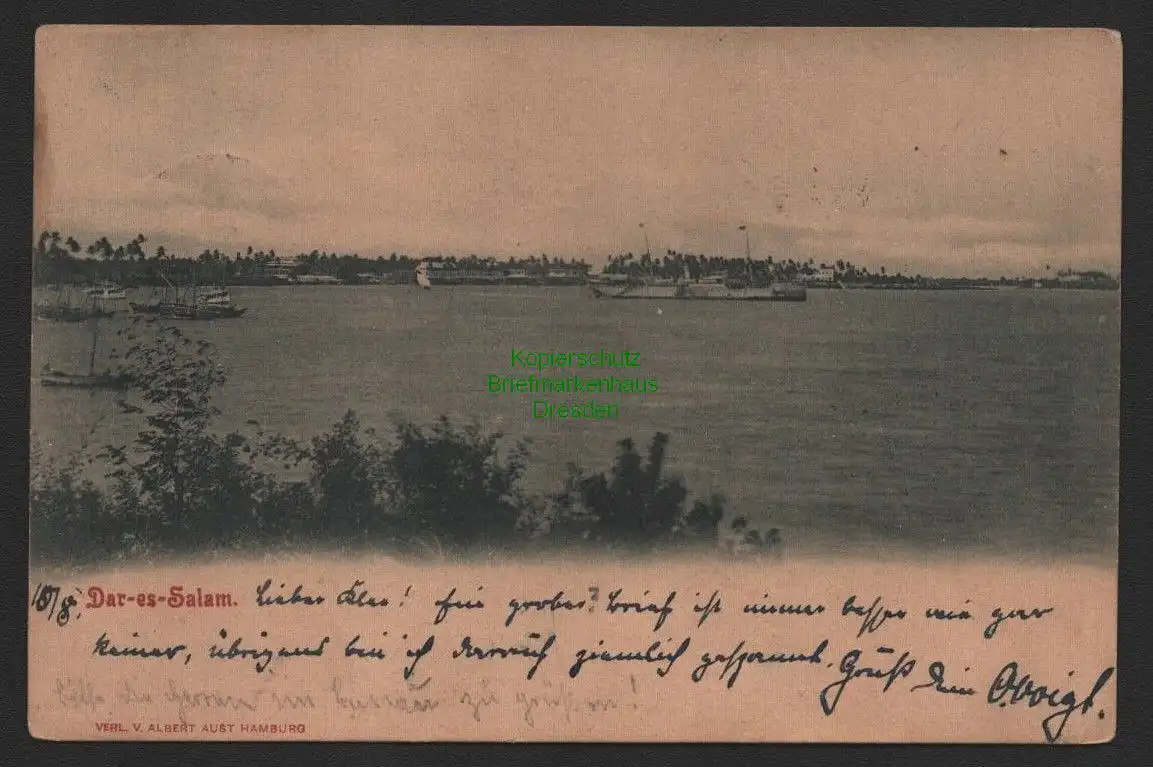 Kopierschutz
Briefmarkenhaus
Dresden
Dar-es-Salam. Lieber! Ein grober? Brief ist immer besser wie gar
keiner, übrigens bin ich darauf ziemlich gespannt. Gruß Dein O. Voigt.
zu grüßen!
VERL. V. ALBERT AUST HAMBURG